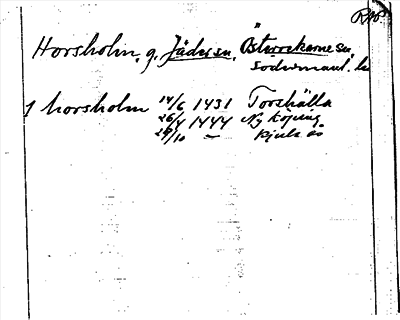 RAP.
Horsholm, g. Jäders sn, Österrekarne sn,
Södermanl. l.
1 horsholm 14/6 1431 Torshälla
26/4 1444 Nyköping
29/10 — Kjula ås